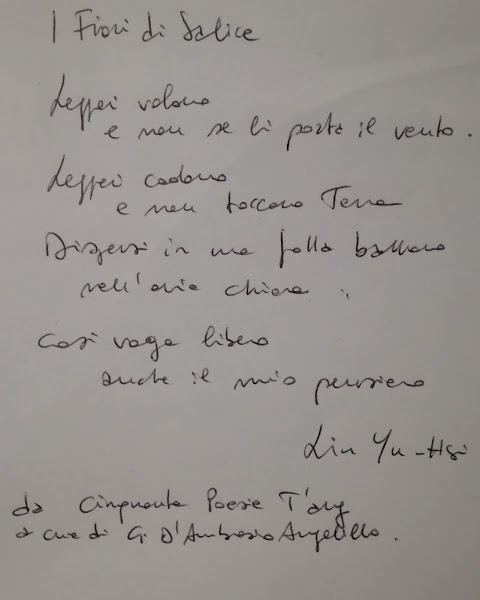 I Fiori di Salice
Leggeri volano
e non se li porta il vento.
Leggeri cadono
e non toccano Terra
Dispersi in una folla ballano
nell'aria chiara :
Così vaga libero
anche il mio pensiero
Liu Yu-Hsi
da Cinquanta Poesie T'ang
a cura di G. D'Ambrosio Angelillo.